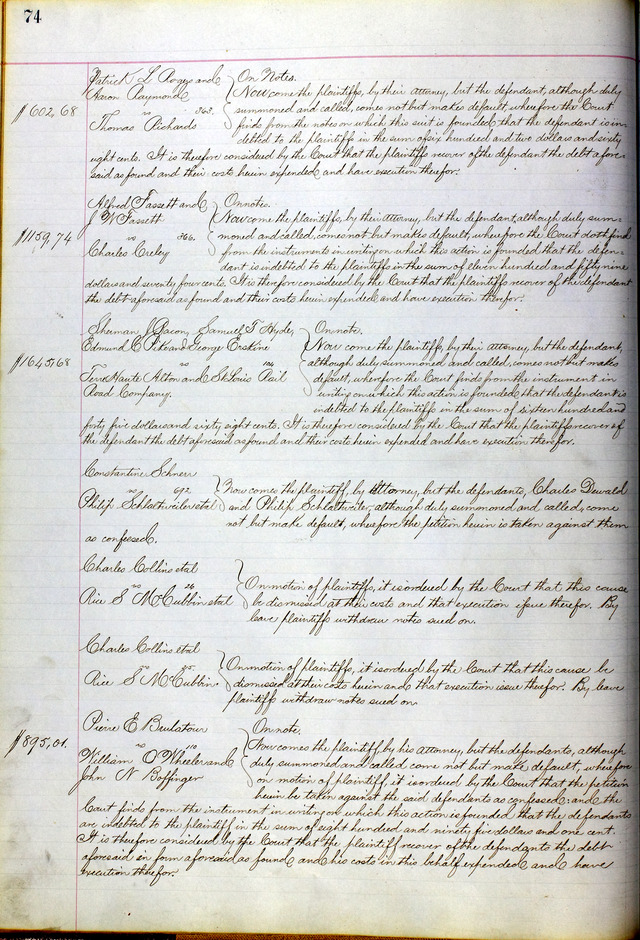 74
Patrick L Rogers and } On Notes.
Aaron Raymond } Now come the plaintiffs, by their attorney, but the defendant, although duly
$602,68 vs 363. summoned and called, comes not but makes default wherefore the Court
Thomas Richards } finds from the notes on which this suit is founded that the defendant is in-
debted to the plaintiffs in the sum of six hundred and two dollars and sixty
eight cents. It is therefore considered by the Court that the plaintiffs recover of the defendant the debt afore-
said as found and their costs herein expended and have execution therefor.
Alfred Fassett and } On notes.
J W Fassett } Now come the plaintiffs, by their Attorney, but the defendant, although duly sum-
$1159,74 vs 366. moned and called, comes not but makes default, wherefore the Court doth find
Charles Creley } from the instruments in writing on which this action is founded that the defen-
dant is indebted to the plaintiffs in the sum of eleven hundred and fifty nine
dollars and seventy four cents. It is therefore considered by the Court that the plaintiffs recover of the defendant
the debt aforesaid as found and their costs herein expended and have execution therefor.
Sherman J Bacon, Samuel T Hyde, } On note.
Edmund C Pike and George Erskine } Now come the plaintiffs, by their Attorney, but the defendant,
$1645,68 vs although duly summoned and called, comes not but makes
Terre Haute Alton and St Louis Rail } default, wherefore the Court finds from the instrument in
Road Company. writing on which this action is founded that the defendant is
indebted to the plaintiffs in the sum of sixteen hundred and
forty five dollars and sixty eight cents. It is therefore considered by the Court that the plaintiffs recover of
the defendant the debt aforesaid as found and their costs herein expended and have execution therefor.
Constantine Schnerr
vs 692 } Now comes the plaintiff, by Attorney, but the defendants, Charles Dewald
Philip Schlattweiler et al } and Philip Schlattweiler, although duly summoned and called, come
not but make default, wherefore the petition herein is taken against them
as confessed.
Charles Collins et al
vs 26 } On motion of plaintiffs, it is ordered by the Court that this cause
Rice S McCubbin et al } be dismissed at their costs and that execution issue therefor. By
leave plaintiffs withdraw notes sued on.
Charles Collins et al
vs } On motion of plaintiffs, it is ordered by the Court that this cause be
Rice S McCubbin. } dismissed at their costs herein and that execution issue therefor. By leave
plaintiffs withdraw notes sued on.
Pierre E Brulatour } On note.
$895,01. vs 110 } Now comes the plaintiff, by his attorney, but the defendants, although
William O Wheeler and } duly summoned and called come not but make default, wherefore
John N Boffinger } on motion of plaintiff, it is ordered by the Court that the petition
herein be taken against the said defendants as confessed: and the
Court finds from the instrument in writing on which this action is founded, that the defendants
are indebted to the plaintiff in the sum of eight hundred and ninety five dollars and one cent.
It is therefore considered by the Court that the plaintiff recover of the defendants the debt
aforesaid in form aforesaid as found and his costs in this behalf expended and have
execution therefor.